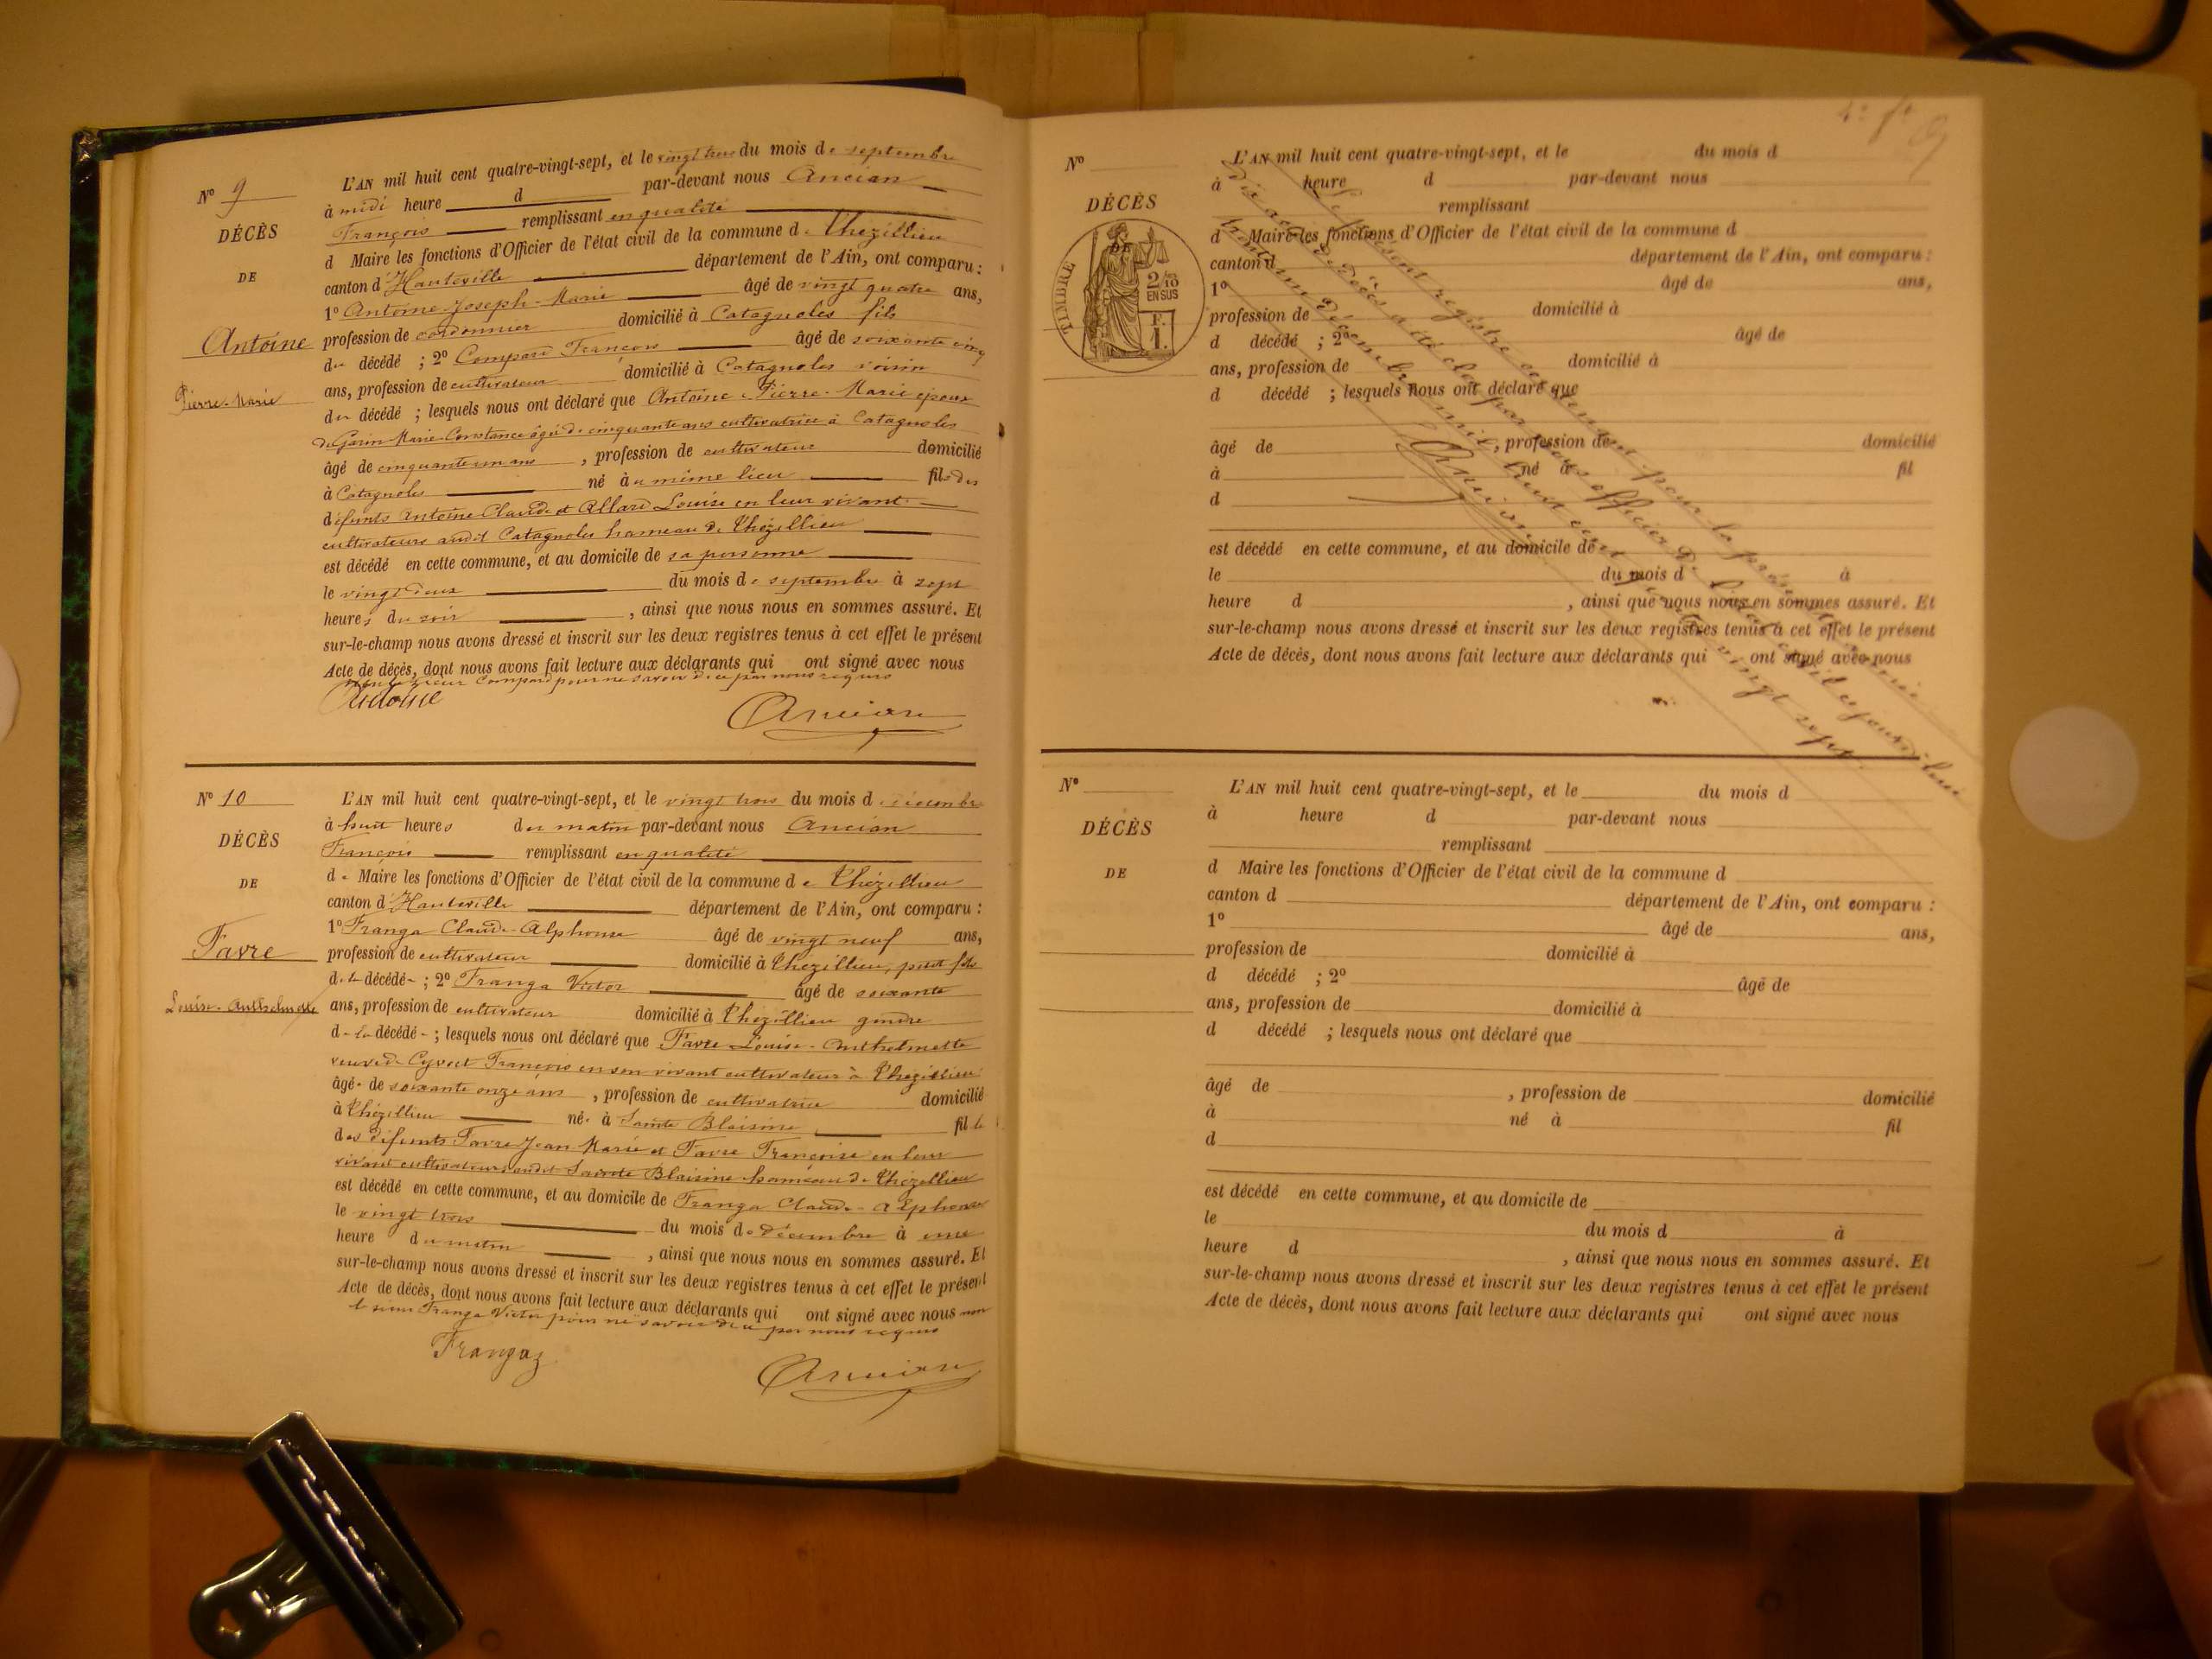 N° 9
DÉCÈS
DE
Antoine
Pierre-Marie
L'AN mil huit cent quatre-vingt-sept, et le vingt trois du mois de septembre
à midi heure d par-devant nous Ancian
François remplissant en qualité
d Maire les fonctions d'Officier de l'état civil de la commune de Thézillieu
canton d'Hauteville département de l'Ain, ont comparu :
1° Antoine Joseph-Marie âgé de vingt quatre ans,
profession de cordonnier domicilié à Catagnoles fils
du décédé ; 2° Compard François âgé de soixante cinq
ans, profession de cultivateur domicilié à Catagnoles voisin
du décédé ; lesquels nous ont déclaré que Antoine Pierre-Marie époux
de Garin Marie-Constance âgée de cinquante ans cultivatrice à Catagnoles
âgé de cinquante un ans, profession de cultivateur domicilié
à Catagnoles né à u même lieu fils des
défunts Antoine Claude et Allard Louise en leur vivant
cultivateurs audit Catagnoles hameau de Thézillieu
est décédé en cette commune, et au domicile de sa personne
le vingt deux du mois de septembre à sept
heures du soir, ainsi que nous nous en sommes assuré. Et
sur-le-champ nous avons dressé et inscrit sur les deux registres tenus à cet effet le présent
Acte de décès, dont nous avons fait lecture aux déclarants qui ont signé avec nous
non le sieur Compard pour ne savoir de ce par nous requis
Antoine
Ancian
N° 10
DÉCÈS
DE
Favre
Louise-Anthelmette
L'AN mil huit cent quatre-vingt-sept, et le vingt trois du mois de décembre
à huit heures du matin par-devant nous Ancian
François remplissant en qualité
de Maire les fonctions d'Officier de l'état civil de la commune de Thézillieu
canton d'Hauteville département de l'Ain, ont comparu :
1° Franga Claude-Alphonse âgé de vingt neuf ans,
profession de cultivateur domicilié à Thézillieu, petit fils
de la décédée ; 2° Franga Victor âgé de soixante
ans, profession de cultivateur domicilié à Thézillieu gendre
de la décédée ; lesquels nous ont déclaré que Favre Louise-Anthelmette
veuve de Cyvoct François en son vivant cultivateur à Thézillieu
âgée de soixante onze ans, profession de cultivatrice domicilié
à Thézillieu née à Sainte Blaisine fille
des défunts Favre Jean Marie et Favre Françoise en leur
vivant cultivateurs audit Sainte Blaisine hameau de Thézillieu
est décédé en cette commune, et au domicile de Franga Claude-Alphonse
le vingt trois du mois de décembre à une
heure du matin, ainsi que nous nous en sommes assuré. Et
sur-le-champ nous avons dressé et inscrit sur les deux registres tenus à cet effet le présent
Acte de décès, dont nous avons fait lecture aux déclarants qui ont signé avec nous non
le sieur Franga Victor pour ne savoir de ce par nous requis
Frangaz
Ancian
N°
DÉCÈS
TIMBRE
2/10
EN SUS
F.
1.
L'AN mil huit cent quatre-vingt-sept, et le du mois d
à heure d par-devant nous
remplissant
d Maire les fonctions d'Officier de l'état civil de la commune d
canton d département de l'Ain, ont comparu :
1° âgé de ans,
profession de domicilié à
d décédé ; 2° âgé de
ans, profession de domicilié à
d décédé ; lesquels nous ont déclaré que
âgé de , profession de domicilié
à né à fil
d
est décédé en cette commune, et au domicile de
le du mois d à
heure d , ainsi que nous nous en sommes assuré. Et
sur-le-champ nous avons dressé et inscrit sur les deux registres tenus à cet effet le présent
Acte de décès, dont nous avons fait lecture aux déclarants qui ont signé avec nous
Le présent registre contenant pour la présente année
dix actes de décès a été clos par nous officier de l'état civil ce jourd'hui
trente un décembre mil huit cent quatre vingt sept.
Ancian
N°
DÉCÈS
DE
L'AN mil huit cent quatre-vingt-sept, et le du mois d
à heure d par-devant nous
remplissant
d Maire les fonctions d'Officier de l'état civil de la commune d
canton d département de l'Ain, ont comparu :
1° âgé de ans,
profession de domicilié à
d décédé ; 2° âgé de
ans, profession de domicilié à
d décédé ; lesquels nous ont déclaré que
âgé de , profession de domicilié
à né à fil
d
est décédé en cette commune, et au domicile de
le du mois d à
heure d , ainsi que nous nous en sommes assuré. Et
sur-le-champ nous avons dressé et inscrit sur les deux registres tenus à cet effet le présent
Acte de décès, dont nous avons fait lecture aux déclarants qui ont signé avec nous